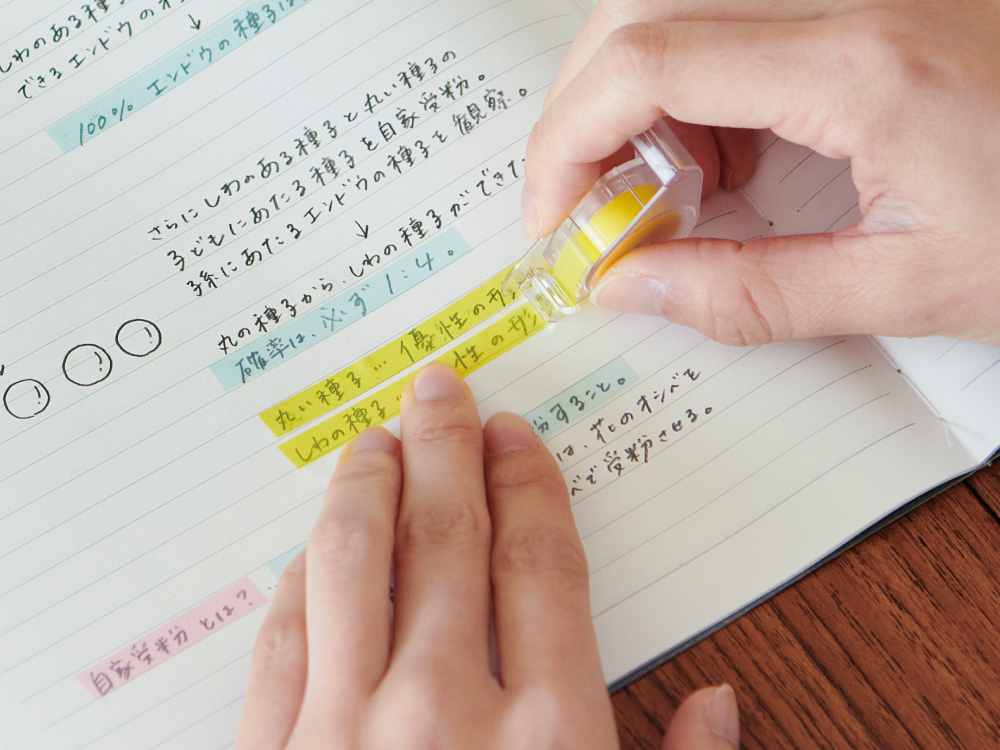 しわのある種
できるエンドウの
↓
100% エンドウの種子は
さらにしわのある種子と丸い種子の
子どもにあたる種子を自家受粉。
孫にあたるエンドウの種子を観察。
↓
丸の種子から、しわの種子ができた
確率は、必ず1:4。
丸い種子… 優性の
しわの種子 性の
分すること。
は、花のオシベを
べで受粉させる。
自家受粉とは?